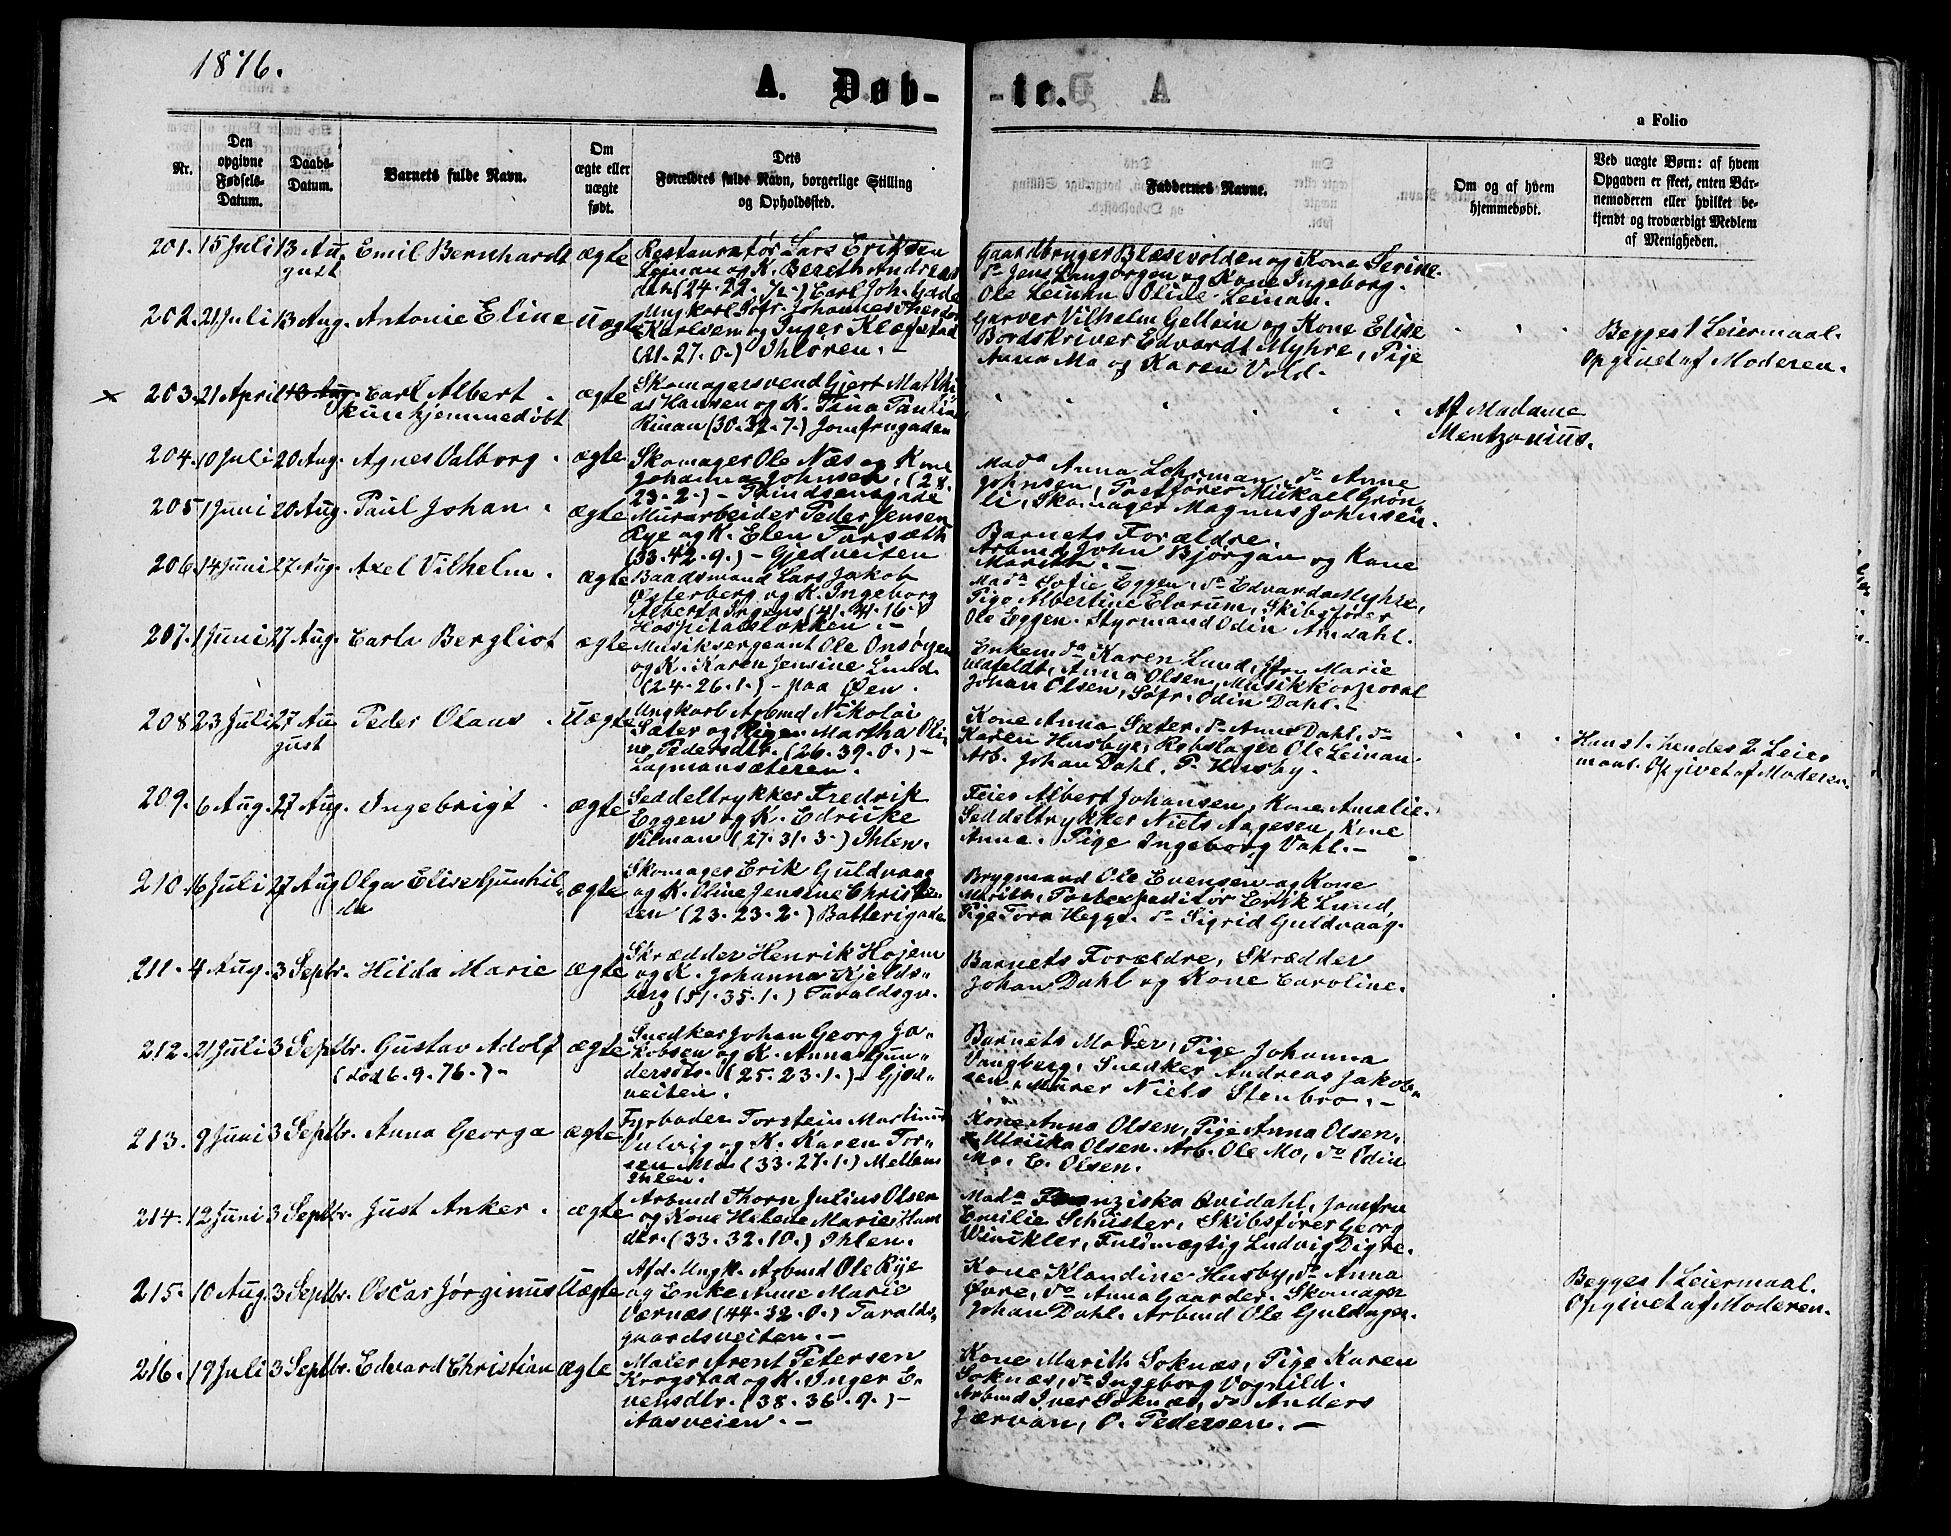 1876.
A. Døb-
-te.
a Folio
Nr.
Den opgivne Fødsels-Datum.
Daabs-Datum.
Barnets fulde Navn.
Om ægte eller uægte født.
Dets Forældres fulde Navn, borgerlige Stilling og Opholdssted.
Faddernes Navne.
Om og af hvem hjemmedøbt.
Ved uægte Børn: af hvem Opgaven er skeet, enten Barnemoderen eller hvilket bekjendt og troværdigt Medlem af Menigheden.
201. 15 Juli 13 August Emil Bernhardt ægte
Restauratør Lars Eriksen
Leinan og K. Bereth Andreas
dtr (24. 22. ½) Carl Joh. Gade
Gaardbruger Blæsevolden og Kone Serine.
do Jens Langørgen og Kone Ingeborg.
Ole Leinan. Oline Leinan.
202. 21 Juli 13 Aug. Antonie Eline uægte
Ungkarl Søfr. Johannes Theodor
Karlsen og Inger Klæfstad
(21. 27. 0.) Ihlören. -
Garver Vilhelm Gellein og Kone Elise
Bordskriver Edvardt Myhre, Pige
Anna Mo og Karen Vold.
Begges 1 Leiermaal.
Opgivet af Moderen.
× 203. 21 April 13 Aug. Carl Albert. ægte
kun hjemmedøbt
Skomagersvend Gjert Mathi
as Hansen og K. Tina Paulia
Rinan (30. 32. 7.) Jomfrugaden
Af Madame
Mentzonius.
204. 10 Juli 20 Aug. Agnes Valborg. ægte
Skomager Ole Næs og Kone
Johanna Johnsen, (28.
23. 2.) -
Mada Anna Lohrman, do Anne
Johnsen, Postfører Mickael Grön
li, Skomager Magnus Johnsen.
205 1 Juni 20 Aug. Paul Johan. ægte
Murarbeider Peder Jensen
Rye og K. Elen Forsæth
(33. 42. 9.) - Gjedveiten
Barnets Forældre.
Arbmd John Bjørgan og Kone
Marith. -
206. 14 Juni 27 Aug. Axel Vilhelm. ægte
Baadsmand Lars Jakob
Østerberg og K. Ingeborg
Alberta Irgens (41. 41. 16.)
Hospitalsløkken. -
Mada Sofie Eggen, do Edvarda Myhre,
Pige Albertine Elvrum, Skibsfører
Ole Eggen. Styrmand Odin Amdahl.
207. 1 Juni 27 Aug. Carla Bergliot ægte
Musiksergeant Ole Onsøyen
og K. Karen Jensine Lund.
(24. 26. 1.) - paa Øen.
Enkemda Karen Lund, Jfr. Marie
Ulafeldt, Anna Olsen, Musikkorporal
Johan Olsen, Søfr. Odin Dahl. -
208 23 Juli 27 August Peder Olaus. Uægte
Ungkarl Arbmd Nikolai
Sæter og Pigen Martha Oli
ne Pedersdtr. (26. 39. 0.) -
Lagmansæteren.
Kone Anna Sæter, do Anne Dahl, do
Karen Husbye, Rebslager Ole Leinan
Arb. Johan Dahl. P. Husby.
Hans 1. hendes 2 Leier
maal. Opgivet af Moderen.
209. 6 Aug. 27 Aug. Ingebrigt. ægte
Seddeltrykker Fredrik
Eggen og K. Edricke
Vilman (27. 31. 3.) Ihlen.
Feier Albert Johansen, Kone Amalie.
Seddeltrykker Niels Aagesen, Kone
Anna. Pige Ingeborg Vahl. -
210. 16 Juli 27 Aug Olga Elise Gunhil-
da ægte
Skomager Erik Guldvaag
og K. Oline Jensine Christen
sen (23. 23. 2.) Batterigaden
Brygmand Ole Evensen og Kone
Marith, Postexpeditør Erik Lund,
Pige Tora Hegge. do Sigrid Guldvaag.
211. 4 Aug. 3 Septbr. Hilda Marie ægte
Skrædder Henrik Hojem
og K. Johanna Kjelds-
berg (51. 35. 1.) Taraldsgv.
Barnets Forældre, Skrædder
Johan Dahl og Kone Caroline.
212. 21 Juli 3 Septbr. Gustav Adolf ægte
(død 6. 9. 76.) -
Snedker Johan Georg Ja-
kobsen og K. Anna Gun-
dersdtr. (25. 23. 1.) - Gjed-
veiten.
Barnets Moder, Pige Johanna
Vangberg, Snedker Andreas Jakob-
sen, Murer Niels Stenbro. -
213. 9 Juni 3 Septbr. Anna Georga ægte
Fyrbøder Torstein Martinus
Vulvig og K. Karen Tor-
sen Mo. (33. 27. 1.) Mellem
Ihlen.
Kone Anna Olsen, Pige Anna Olsen,
Ulrikka Olsen. Arb. Ole Mo, do Odin
Mo. E. Olsen.
214. 12 Juni 3 Septbr. Just Anker. ægte
Arbmd Thorn Julius Olsen
og Kone Helene Marie Hans
dtr. (33. 32. 10.) Ihlen.
Mada Franziska Qvidahl, Jomfru
Emilie Schüster, Skibsfører Georg
Winckler, Fuldmægtig Ludvig Digre.
215. 10 Aug. 3 Septbr. Oscar Jørginus Uægte
Afd. Ungk. Arbmd Ole Rye
og Enke Anne Marie
Værnes (44. 32. 0.) Taralds-
gaardsveiten. -
Kone Klaudine Husby, do Anna
Øvre, do Anna Gaarder. Skomager
Johan Dahl. Arbmd Ole Guldager.
Begges 1 Leiermaal.
Opgivet af Moderen.
216. 19 Juli 3 Septbr. Edvard Christian ægte
Maler Arent Petersen
Krogstad og K. Inger E-
vensdtr. (38. 36. 9.) -
Aasveien. -
Kone Marith Soknæs, Pige Karen
Soknæs, do Ingeborg Vognild.
Arbmd Iver Soknæs, do Anders
Jærvan, O. Pedersen. -